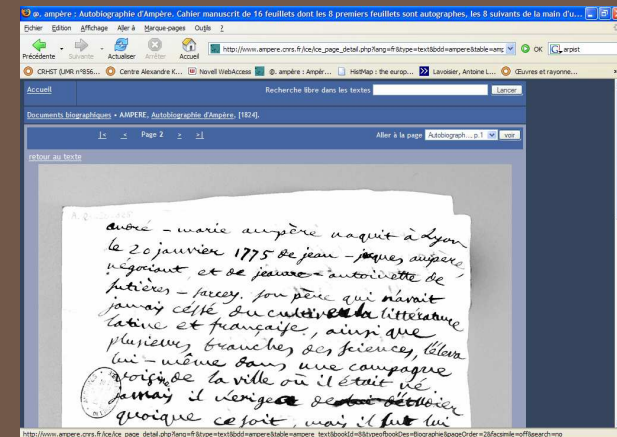 @. ampère : Autobiographie d'Ampère. Cahier manuscrit de 16 feuillets dont les 8 premiers feuillets sont autographes, les 8 suivants de la main d'u...
Fichier Edition Affichage Aller à Marque-pages Outils ?
Précédente Suivante Actualiser Arrêter Accueil http://www.ampere.cnrs.fr/ice/ice_page_detail.php?lang=fr&type=text&bdd=ampere&table=amp OK arpist
CRHST (UMR n°856... Centre Alexandre K... Novell WebAccess @. ampère : Ampèr... HistMap : the europ... Lavoisier, Antoine L... Œuvres et rayonne...
Accueil Recherche libre dans les textes Lancer
Documents biographiques • AMPERE, Autobiographie d'Ampère, [1824].
|< < Page 2 > >| Aller à la page Autobiograph... p.1 voir
retour au texte
andré - marie ampère naquit à Lyon
le 20 janvier 1775 de jean - jaques ampère,
négociant, et de jeanne - antoinette de
sutières - sarcey. son père qui n'avait
jamais cessé de cultiver la littérature
latine et française, ainsi que
plusieurs branches des sciences, l'éleva
lui - même dans une campagne
voisine de la ville où il était né.
jamais il n'exigea de
quoique ce soit, mais il sut lui
http://www.ampere.cnrs.fr/ice/ice_page_detail.php?lang=fr&type=text&bdd=ampere&table=ampere_text&bookId=88&typeofbookDes=Biographie&pageOrder=2&facsimile=off&search=no